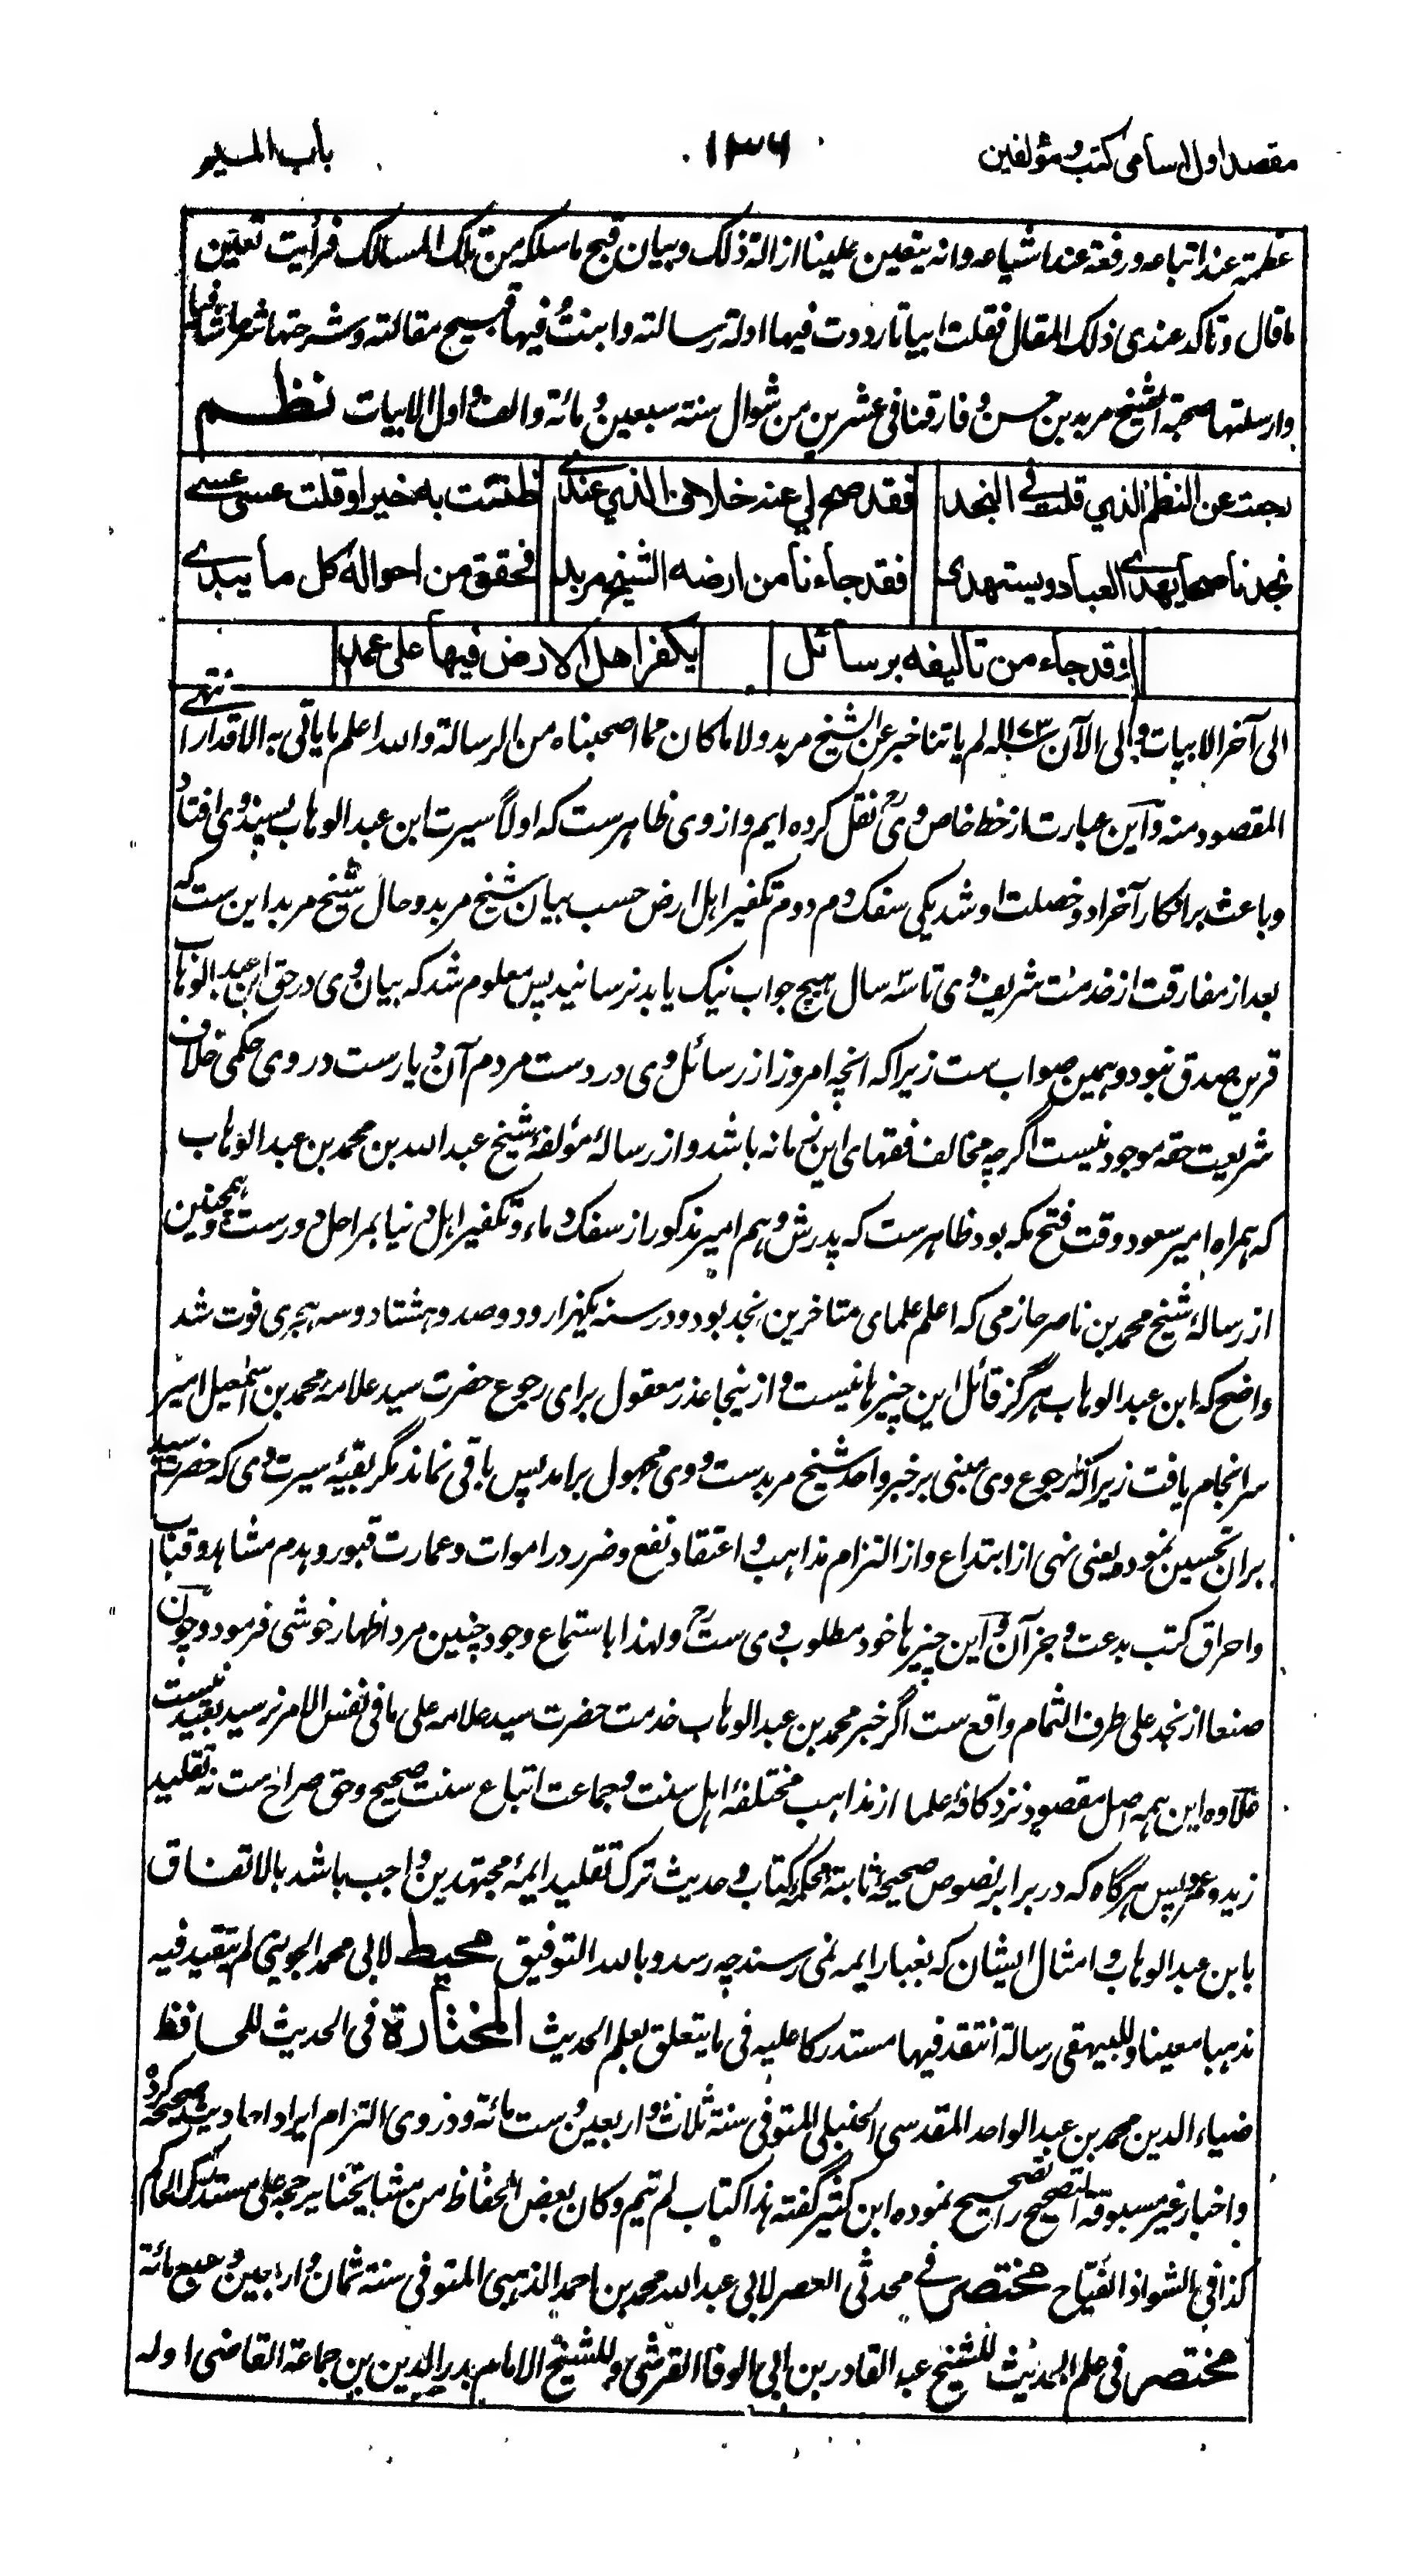 مقصد اول اسامی کتب و مؤلفین ۱۳۶ باب المیم
عظمته عند اتباعه ورفعة عند اشیاعه وانه یتعین علینا ازالة ذلک وبیان قبح ماسلکه من تلک المسالک فرأیت تعین
ما قال وتاکد عندی ذلک المقال فقلت ابیاتا رددت فیها ادلة رسالته وابنتُ فیها قبیح مقالته وشرحتها شرحا شافیا
وارسلتها صحبة الشیخ مربد بن حسن و فارقنا فی عشرین من شوال سنة سبعین و مائة والف و اول الابیات نظم
رجعت عن النظم الذي قلت في النجد فقد صح لي عند خلاف الذي عندي ظننت به خیرا وقلت عسی عسی
نجد ناصحا یهدي العباد ویستهدی فقد جاءنا من ارضه الشیخ مربد فحقق من احواله کل ما یبدي
وقد جاء من تألیفه برسائل یکفر اهل الارض فیها علی عمد
الی آخر الابیات و الی الآن ۱۱۷۳ لم یاتنا خبر عن الشیخ مربد ولا ما کان مما اصحبناه من الرسالة والله اعلم ما یاتی به الاقدار انتهی
المقصود منه و این عبارت از خط خاص وی رح نقل کرده ایم و از وی ظاهرست که اولاً سیرت ابن عبد الوهاب پسند وی افتاد
و باعث بر انکار آخر او دو خصلت او شد یکی سفک دم دوم تکفیر اهل ارض حسب بیان شیخ مربد و حال شیخ مربد این ست که
بعد از مفارقت از خدمت شریف وی تا سه سال هیچ جواب نیک یا بد نرسانید پس معلوم شد که بیان وی در حق ابن عبد الوهاب
قرین صدق نبود و همین صواب ست زیرا که انچه امروز از رسائل وی در دست مردم آن دیارست در وی حکمی خلاف
شریعت حقه موجود نیست اگرچه مخالف فقهای این زمانه باشد و از رسالهٔ مؤلفهٔ شیخ عبد الله بن محمد بن عبد الوهاب
که همراه امیر سعود وقت فتح مکه بود ظاهرست که پدرش و هم امیر مذکور از سفک دماء و تکفیر اهل دنیا بمراحل دورست و همچنین
از رسالهٔ شیخ محمد بن ناصر حازمی که اعلم علمای متاخرین نجد بود و در سنه یکهزار و دوصد و هشتاد و سه هجری فوت شد
واضح که ابن عبد الوهاب هرگز قائل این چیزها نیست و از ینجا عذر معقول برای رجوع حضرت سید علامه محمد بن اسمعیل امیر
سرانجام یافت زیرا که رجوع وی مبنی بر خبر واحد شیخ مربدست و وی مجهول برامد پس باقی نماند مگر بقیهٔ سیرت وی که حضرت سید
بران تحسین نموده یعنی نهی از ابتداع و از التزام مذاهب و اعتقاد نفع و ضرر در اموات و عمارت قبور و هدم مشاهد و قباب
و احراق کتب بدعت و جز آن و این چیزها خود مطلوب وی ست رح ولهذا باستماع وجود چنین مرد اظهار خوشی فرمود و چون
صنعا از نجد علی طرف التمام واقع ست اگر خبر محمد بن عبد الوهاب خدمت حضرت سید علامه علی ما فی نفس الامر نرسید بعید نیست
علاوه این همه اصل مقصود نزد کافهٔ علما از مذاهب مختلفهٔ اهل سنت و جماعت اتباع سنت صحیح و حق صراح ست نه تقلید
زید و عمرو پس هرگاه که در برابر نصوص صحیحهٔ ثابته محکمه کتاب و حدیث ترک تقلید ایمهٔ مجتهدین واجب باشد بالاتفاق
با ابن عبد الوهاب و امثال ایشان که بغبار ایمه نمی رسند چه رسد و بالله التوفیق محیط لابی محمد الجوینی لم یتقید فیه
مذهبا معینا و للبیهقی رسالة انتقد فیها مستدرکا علیه فی ما یتعلق بعلم الحدیث المختارة فی الحدیث للحافظ
ضیاء الدین محمد بن عبد الواحد المقدسی الحنبلی المتوفی سنة ثلاث و اربعین و ست مائة و در وی التزام ایراد احادیث صحیحه کرده
و اخبار غیر مسبوقة التصحیح را تصحیح نموده ابن کثیر گفته هذا کتاب لم یتم و کان بعض الحفاظ من مشایخنا یرجحه علی مستدرک الحاکم
کذا فی الشواذ الفیاح مختصر فی محدثی العصر لابی عبد الله محمد بن احمد الذهبی المتوفی سنة ثمان و اربعین و سبع مائة
مختصر فی علم الحدیث للشیخ عبد القادر بن ابی الوفا القرشی و للشیخ الامام بدر الدین بن جماعة القاضی اوله